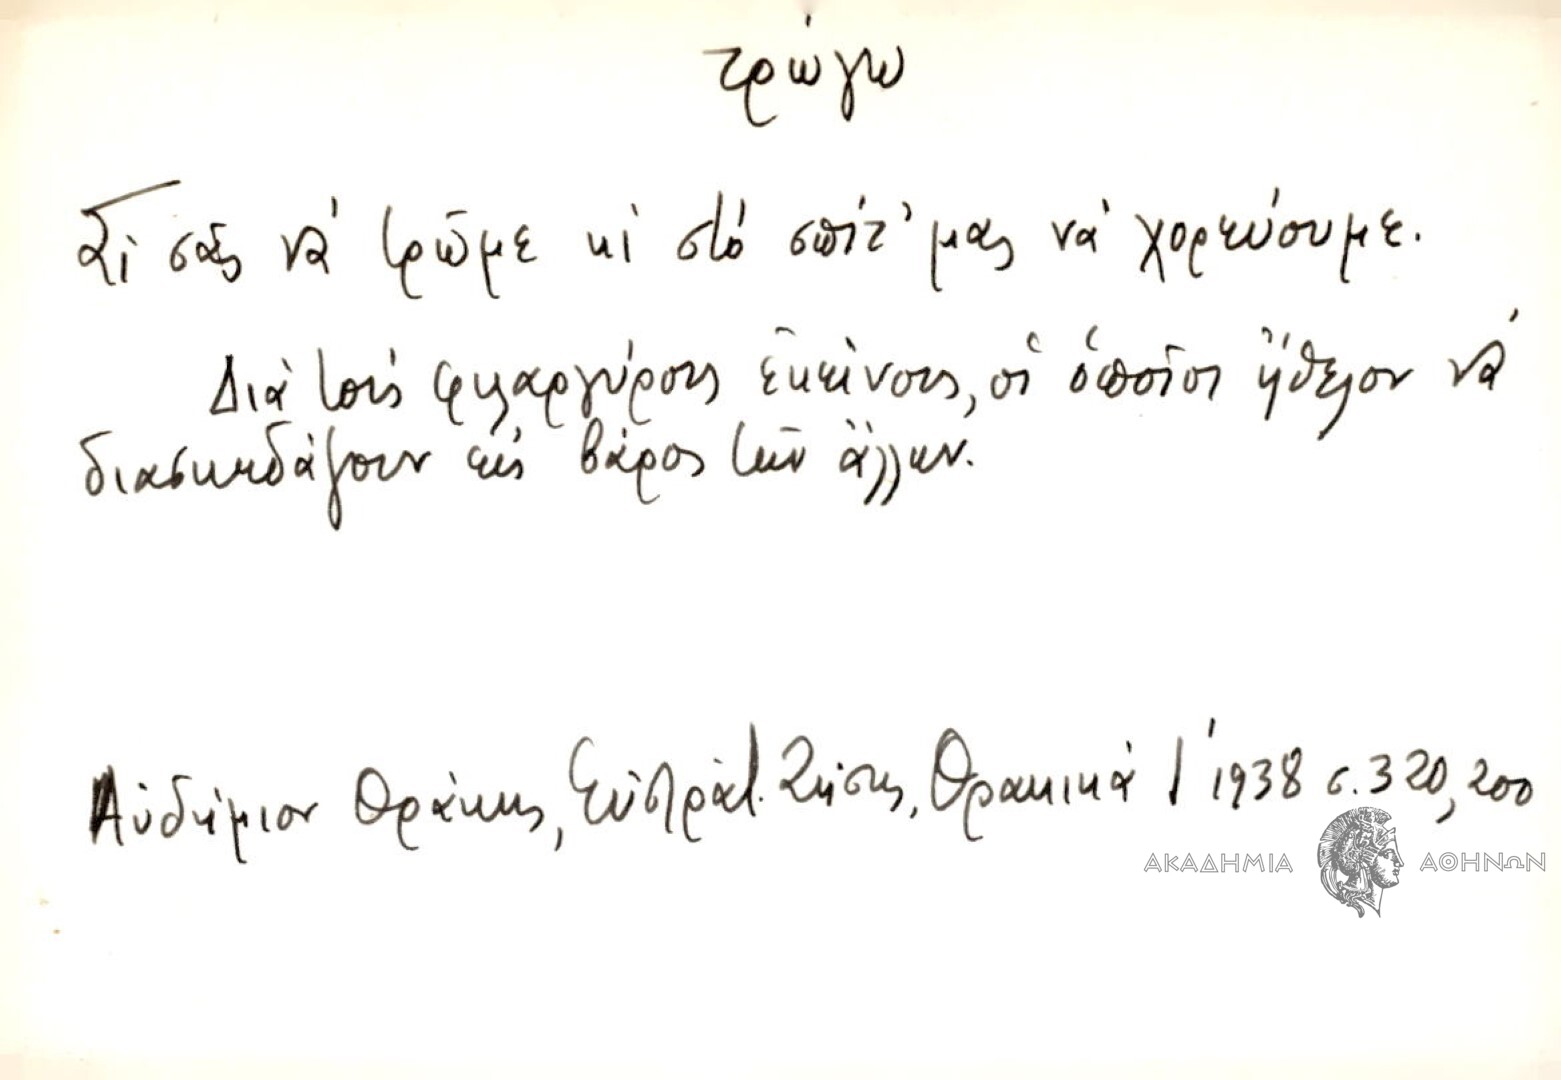 τρώγω
Σὶ σᾶς νὰ τρῶμε κὶ στὸ σπίτ' μας νὰ χορεύουμε.
Διὰ τοὺς φιλαργύρους ἐκείνους, οἱ ὁποῖοι ἤθελον νὰ
διασκεδάζουν εἰς βάρος τῶν ἄλλων.
Αὐδήμιον Θράκης, Εὐστράτ. Ζήσης, Θρακικὰ Ι' 1938 σ. 320, 200
ΑΚΑΔΗΜΙΑ ΑΘΗΝΩΝ